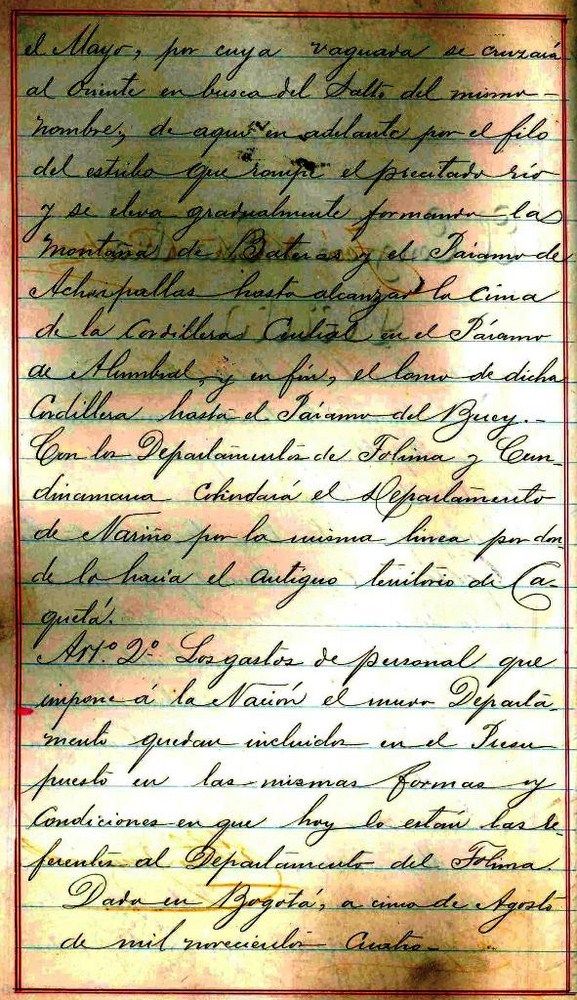 el Mayo, por cuya vaguada se cruzará
al Oriente en busca del Salto del mismo
nombre, de aquí en adelante por el filo
del estribo que rompe el precitado río
y se eleva gradualmente formando la
montaña de Bateros y el Páramo de
Achupallas hasta alcanzar la cima
de la Cordillera Central en el Páramo
de Alumbral, y en fin, el lomo de dicha
Cordillera hasta el Páramo del Buey.-
Con los Departamentos de Tolima y Cun-
dinamarca colindará el Departamento
de Nariño por la misma línea por don-
de lo hacía el antiguo territorio de Ca-
quetá.
Art.º 2º Los gastos de personal que
impone á la Nación el nuevo Departa-
mento quedan incluidos en el Presu
puesto en las mismas formas y
condiciones en que hoy lo están las re-
ferentes al Departamento del Tolima.
Dada en Bogotá, a cinco de Agosto
de mil novecientos cuatro-